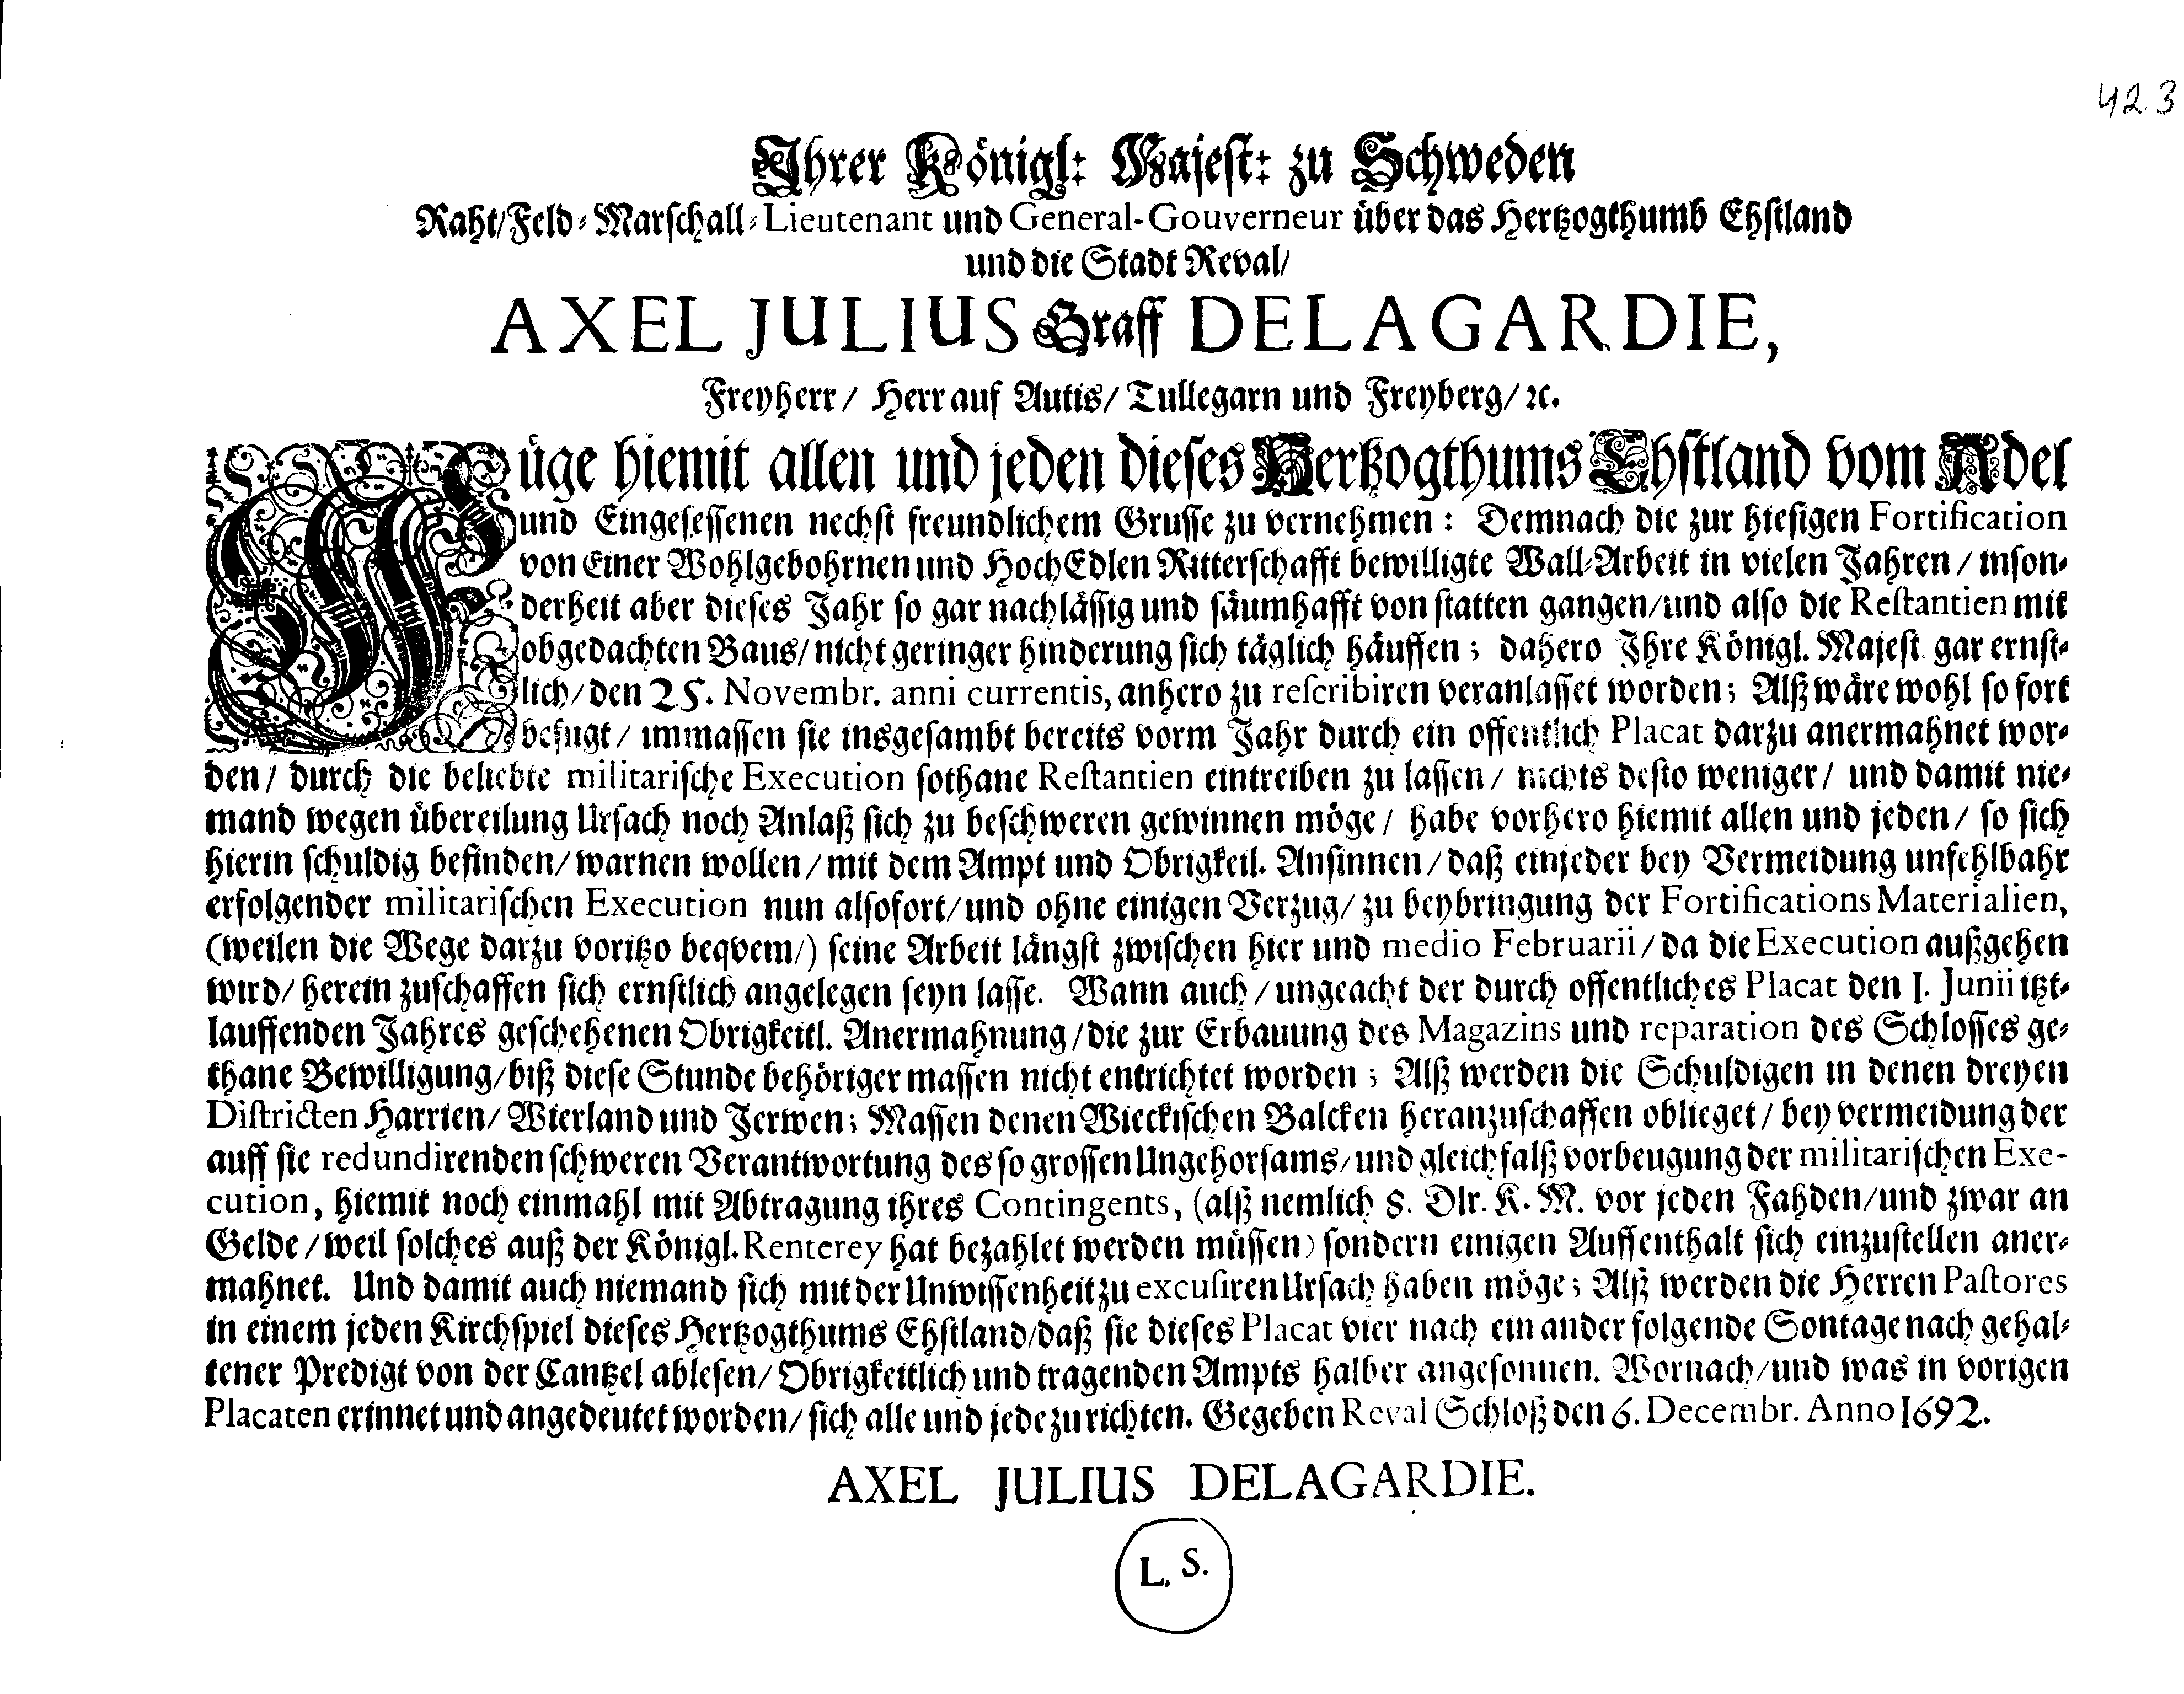 423
Ihrer Königl: Majest: zu Schweden
Raht/Feld-Marschall-Lieutenant und General-Gouverneur über das Hertzogthumb Ehstland
und die Stadt Reval/
AXEL JULIUS Graff DELAGARDIE,
Freyherr/ Herr auf Autis/ Tullegarn und Freyberg/ ꝛc.
Füge hiemit allen und jeden dieses Hertzogthums Ehstland vom Adel
und Eingesessenen nechst freundlichem Grusse zu vernehmen: Demnach die zur hiesigen Fortification
von Einer Wohlgebohrnen und HochEdlen Ritterschafft bewilligte Wall-Arbeit in vielen Jahren/ inson-
derheit aber dieses Jahr so gar nachlässig und säumhafft von statten gangen/und also die Restantien mit
obgedachten Baus/ nicht geringer hinderung sich täglich häuffen; dahero Ihre Königl. Majest. gar ernst-
lich/ den 25. Novembr. anni currentis, anhero zu rescribiren veranlasset worden; Alß wäre wohl so fort
befugt/ immassen sie insgesambt bereits vorm Jahr durch ein offentlich Placat darzu anermahnet wor-
den/ durch die beliebte militarische Execution sothane Restantien eintreiben zu lassen/ nichts desto weniger/ und damit nie-
mand wegen übereilung Ursach noch Anlaß sich zu beschweren gewinnen möge/ habe vorhero hiemit allen und jeden/ so sich
hierin schuldig befinden/ warnen wollen/ mit dem Ampt und Obrigkeil. Ansinnen/ daß einjeder bey Vermeidung unfehlbahr
erfolgender militarischen Execution nun alsofort/ und ohne einigen Verzug/ zu beybringung der Fortifications Materialien,
(weilen die Wege darzu voritzo beqvem/) seine Arbeit längst zwischen hier und medio Februarii/ da die Execution außgehen
wird/ herein zuschaffen sich ernstlich angelegen seyn lasse. Wann auch/ ungeacht der durch offentliches Placat den 1. Junii itzt-
lauffenden Jahres geschehenen Obrigkeitl. Anermahnung/ die zur Erbauung des Magazins und reparation des Schlosses ge-
thane Bewilligung/ biß diese Stunde behöriger massen nicht entrichtet worden; Alß werden die Schuldigen in denen dreyen
Districten Harrien/ Wierland und Jerwen; Massen denen Wieckischen Balcken heranzuschaffen oblieget/ bey vermeidung der
auff sie redundirenden schweren Verantwortung des so grossen Ungehorsams/ und gleichfalß vorbeugung der militarischen Exe-
cution, hiemit noch einmahl mit Abtragung ihres Contingents, (alß nemlich 8. Dlr. K. M. vor jeden Fahden/ und zwar an
Gelde/ weil solches auß der Königl. Renterey hat bezahlet werden müssen) sondern einigen Auffenthalt sich einzustellen aner-
mahnet. Und damit auch niemand sich mit der Unwissenheit zu excusiren Ursach haben möge; Alß werden die Herren Pastores
in einem jeden Kirchspiel dieses Hertzogthums Ehstland/ daß sie dieses Placat vier nach ein ander folgende Sontage nach gehal-
tener Predigt von der Cantzel ablesen/ Obrigkeitlich und tragenden Ampts halber angesonnen. Wornach/ und was in vorigen
Placaten erinnet und angedeutet worden/ sich alle und jede zu richten. Gegeben Reval Schloß den 6. Decembr. Anno 1692.
AXEL JULIUS DELAGARDIE.
L. S.